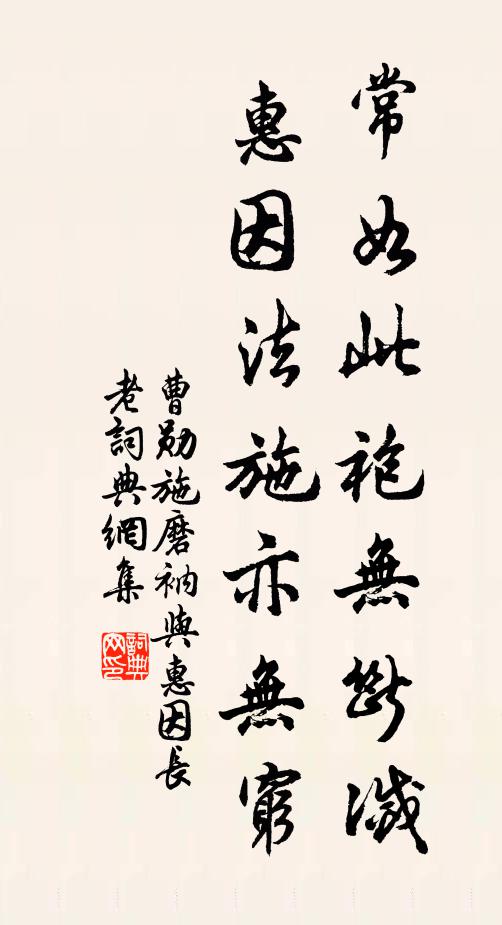 常如此袍無斷滅
惠因法施亦無窮
曹勛施磨衲與惠因長
老詞典網集
詞典
网印